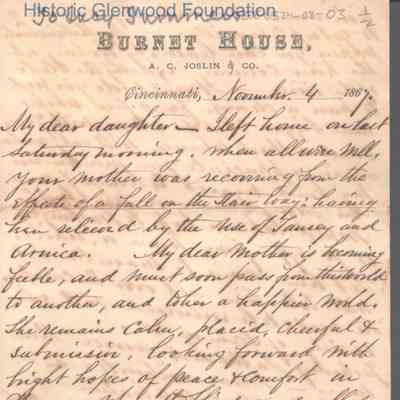 Historic Glenwood Foundation
BURNET HOUSE,
A. C. JOSLIN & CO.
Cincinnati, November. 4 1867.
My dear daughter— I left home on last
Saturday morning. when all were well,
Your mother was recovering from the
effects of a fall on the Stair way: having
been relieved by the use of Tansey and
Arnica. My dear Mother is becoming
feeble, and must soon pass from this world
to another, and to her a happier world.
She remains Calm, placid, Cheerful &
Submissive, looking forward with
bright hopes of peace & Comfort in